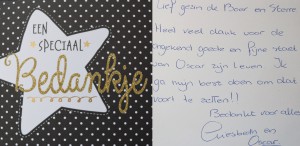 EEN
SPECIAAL
Bedankje
Lief gezin de Boer en Sterre
Heel veel dank voor de
goede en fijne start
van Oscar zijn leven. Ik
ga mijn best doen om dat
voort te zetten!!
Bedankt voor alles
Liesbeth en
Oscar